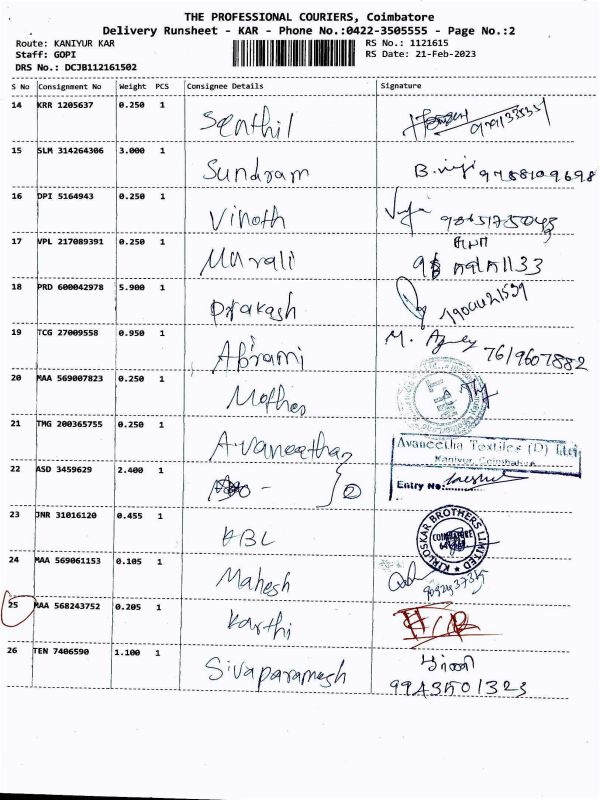 THE PROFESSIONAL COURIERS, Coimbatore
Delivery Runsheet - KAR - Phone No.:0422-3505555 - Page No.:2
Route: KANIYUR KAR
Staff: GOPI
DRS No.: DCJB112161502
RS No.: 1121615
RS Date: 21-Feb-2023
S No Consignment No Weight PCS Consignee Details Signature
14 KRR 1205637 0.250 1 Senthil
15 SLM 314264306 3.000 1 Sundram
16 DPI 5164943 0.250 1 Vinoth
17 VPL 217089391 0.250 1 Murali
18 PRD 600042978 5.900 1 Prakash
19 TCG 27009558 0.950 1 Abirami 7619607882
20 MAA 569007823 0.250 1 Mothes
21 TMG 200365755 0.250 1 Avaneetha
Avaneetha Textiles (P) Ltd
Kaniyur, Coimbatore
22 ASD 3459629 2.400 1 2
Entry No:
23 JNR 31016120 0.455 1 KBL
KIRLOSKAR BROTHERS LIMITED
COIMBATORE
24 MAA 569061153 0.105 1 Mahesh
25 MAA 568243752 0.205 1 Karthi
26 TEN 7406590 1.100 1 Sivaparamesh